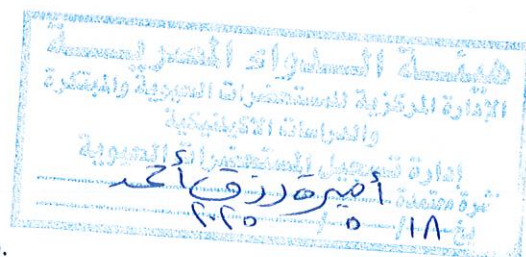 هيئة الدواء المصرية
الإدارة المركزية للمستحضرات الحيوية والمبتكرة
والدراسات الاكلينيكية
إدارة تسجيل المستحضرات الحيوية
نشرة معتمدة أميرة رزق أحمد
١٨/ ٥ / ٢٠٢٥